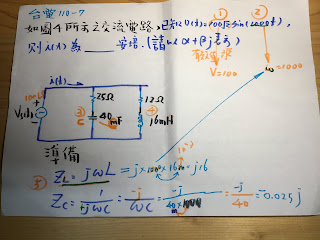 台電110-7
②
如圖4所示之交流電路,已知V(t)=100√2 sin(1000t),
則i(t)為 ___ 安培。(請以α+βj表示)
①
有效值
V=100
ω=1000
i(t)
100V
Vs(t)
25Ω
12Ω
③
C
40mF
④
L
16mH
準備
⑤ ZL=jωL=j×1000×16m=j16
Zc=1/jωC=-j/ωC=-j/40m×1000=-j/40=-0.025j